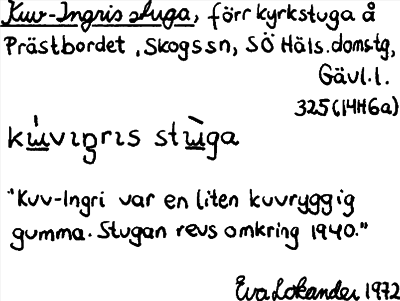 Kuv-Ingris stuga, förr kyrkstuga å
Prästbordet, Skogs sn, SÖ Häls. domstg,
Gävl. l.
325 (14H6a)
kɯ́vıŋrıs stɯ̀ga
"Kuv-Ingri var en liten kuvryggig
gumma. Stugan revs omkring 1940."
Eva Lokander 1972